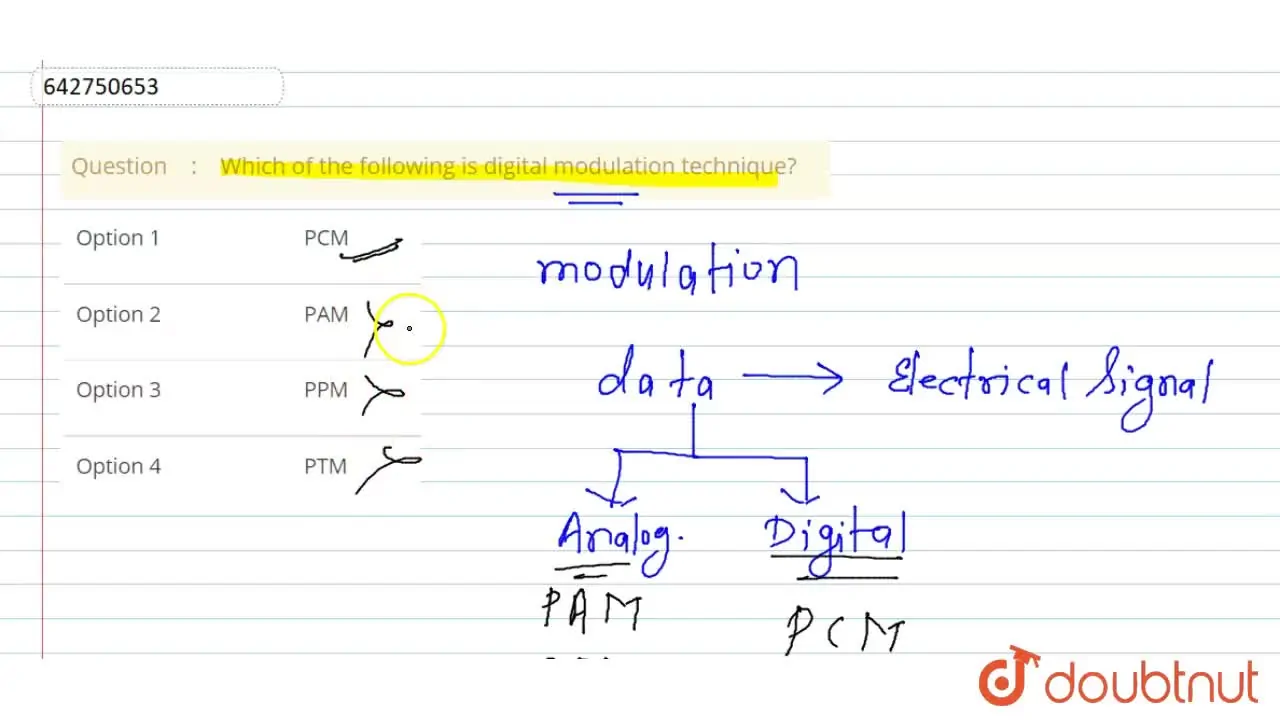 642750653
Question : Which of the following is digital modulation technique?
Option 1 PCM
modulation
Option 2 PAM
data → Electrical Signal
Option 3 PPM
Option 4 PTM
Analog. Digital
PAM PCM
doubtnut